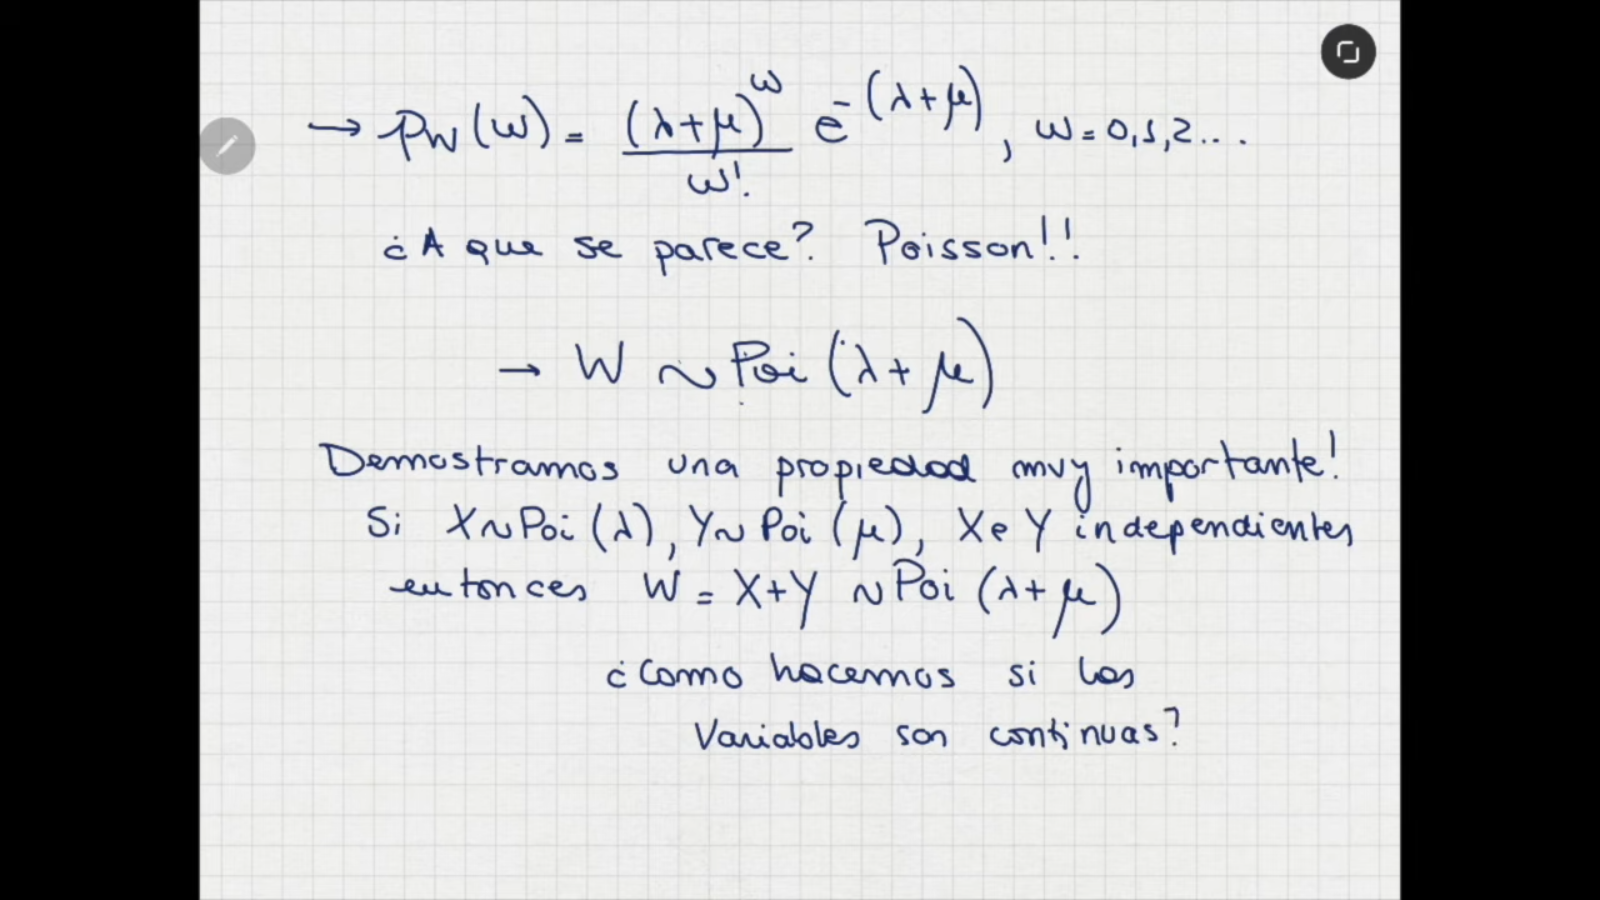 → p_W(ω) = (λ+μ)^ω / ω! e^-(λ+μ), ω = 0,1,2...
¿A que se parece? Poisson!!
→ W ~ Poi (λ+μ)
Demostramos una propiedad muy importante!
Si X~Poi(λ), Y~Poi(μ), X e Y independientes
entonces W = X+Y ~ Poi (λ+μ)
¿Como hacemos si las
Variables son continuas?